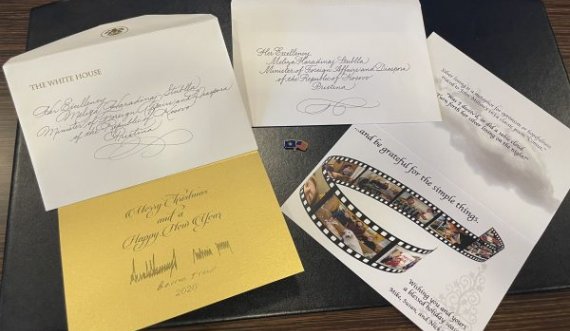 THE WHITE HOUSE
Her Excellency
Meliza Haradinaj Stublla
Minister of Foreign Affairs and Diaspora
of the Republic of Kosovo
Pristina
Her Excellency
Meliza Haradinaj Stublla
Minister of Foreign Affairs and Diaspora
of the Republic of Kosovo
Pristina
Merry Christmas
and a
Happy New Year
2020
...and be grateful for the simple things.
Wishing you and yours
a blessed holiday
Mike, Susan, and